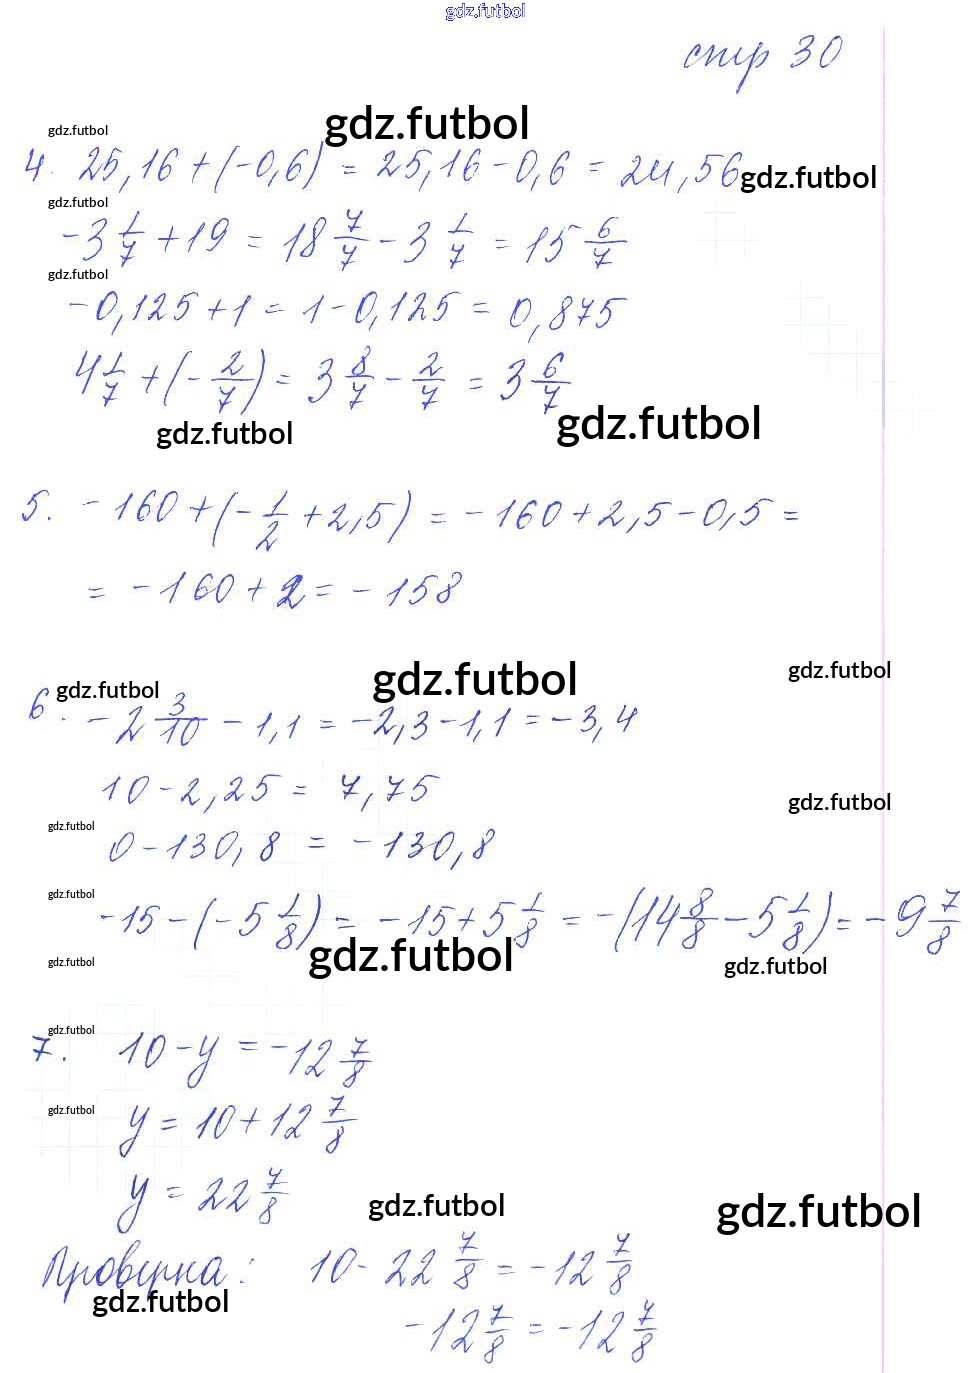 gdz.futbol
стр 30
gdz.futbol
gdz.futbol
4. 25,16 + (-0,6) = 25,16 - 0,6 = 24,56
gdz.futbol
gdz.futbol
-3 1/7 + 19 = 18 7/7 - 3 1/7 = 15 6/7
gdz.futbol
-0,125 + 1 = 1 - 0,125 = 0,875
4 1/7 + (- 2/7) = 3 8/7 - 2/7 = 3 6/7
gdz.futbol
gdz.futbol
5. -160 + (- 1/2 + 2,5) = -160 + 2,5 - 0,5 =
= -160 + 2 = -158
gdz.futbol
gdz.futbol
gdz.futbol
6. -2 3/10 - 1,1 = -2,3 - 1,1 = -3,4
10 - 2,25 = 7,75
gdz.futbol
gdz.futbol
0 - 130,8 = -130,8
gdz.futbol
-15 - (-5 1/8) = -15 + 5 1/8 = -(14 8/8 - 5 1/8) = -9 7/8
gdz.futbol
gdz.futbol
gdz.futbol
gdz.futbol
7. 10 - y = -12 7/8
gdz.futbol
y = 10 + 12 7/8
y = 22 7/8
gdz.futbol
gdz.futbol
Проверка: 10 - 22 7/8 = -12 7/8
gdz.futbol
-12 7/8 = -12 7/8